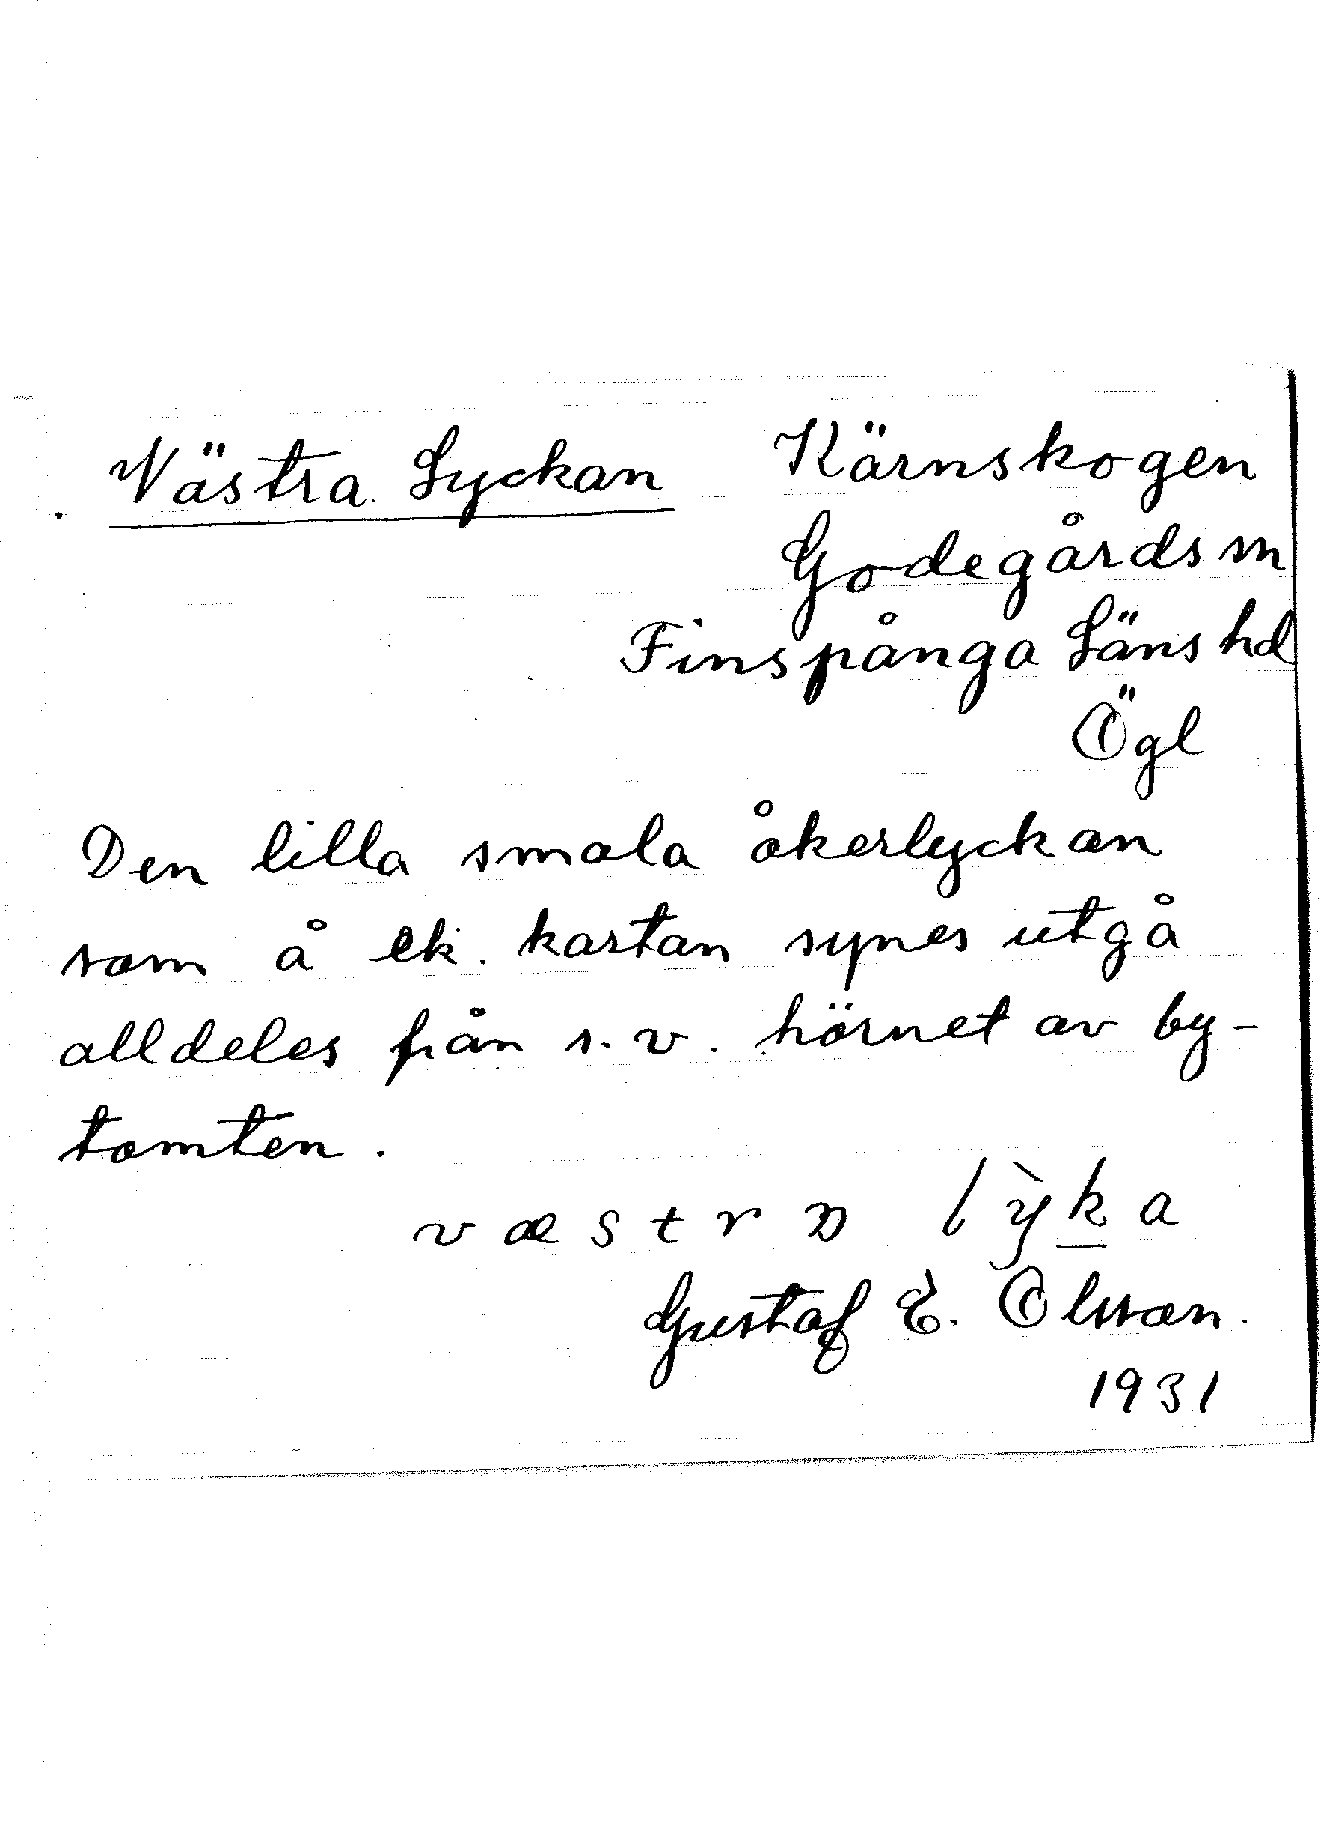 Västra Lyckan
Kärnskogen
Godegårds sn
Finspånga Läns hd
Ögl
Den lilla smala åkerlyckan
som å ek. kartan synes utgå
alldeles från s.v. hörnet av by-
tomten.
væstra lỳka
Gustaf E. Olsson.
1931